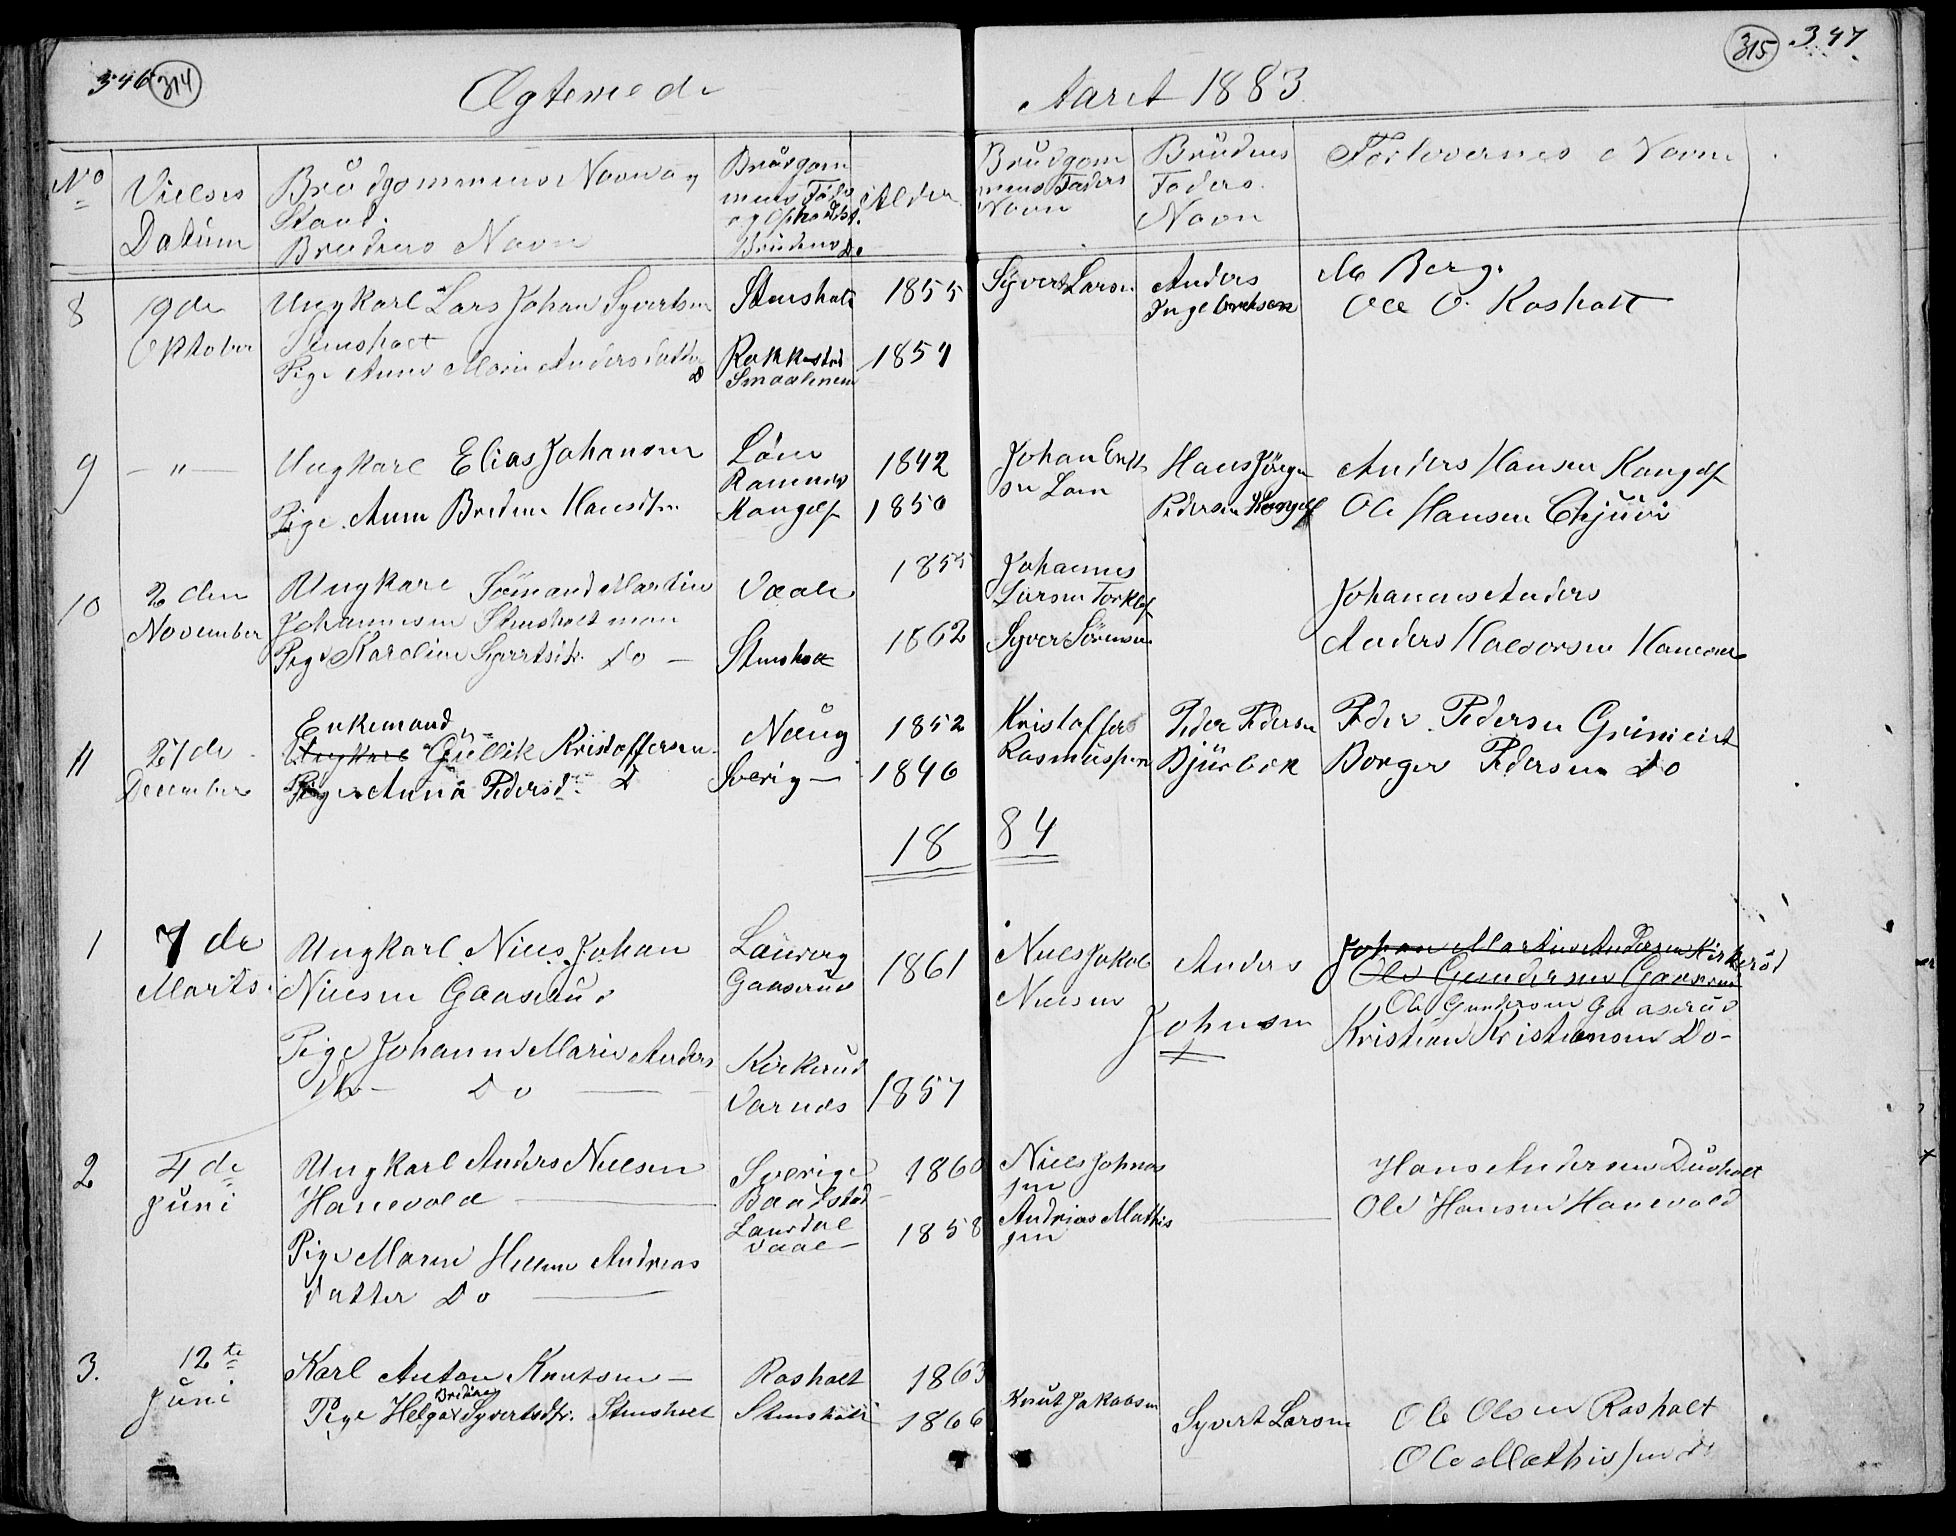 346 314
Ægteviede
Aaret 1883
315 347
No
Vielses
Datum
Brudgommens Navn og
Stand.
Brudens Navn
Brudgom
mens Føde
og Opholdsst.
Brudens Do
Alder
Brudgom
mens Faders
Navn
Brudens
Faders
Navn
Forlovernes Navn
8
9de
Oktober
Ungkarl Lars Johan Syvertsen
Stensholt
Pige Anne Marie Andersdatter
Do
Stensholt
Rakkestad
Smaalenene
1855
1857
Syvert Larsen
Anders
Ingebretsen
M Berg.
Ole O. Rosholt
9
— " —
Ungkarl Elias Johansen
Pige Anna Bredine Hansdtr.
Lørn
Ramnes
Kongelf
1842
1850
Johan
sen
Hans Jörgen
Pedersen Kongelf
Anders Hansen Kongelf
Ole Hansen
10
2den
November
Ungkarl Sömand Martin
Johannesen Stensholt
Pige Karoline Syvertsdtr. Do —
Vaale
Stensholt
1855
1862
Johannes
Larsen
Syver Sörensen
Johannes Anders
Anders Halvorsen
11
27de
December
Enkemand
Ungkarl Gullik Kristoffersen
Pige Anna Pedersd. D
Næug
Sverig —
1852
1846
Kristoffer
Rasmussen
Peder Pedersen
Björbek
Peder Pedersen
Borger Pedersen Do
18 84
1
7de
Marts
Ungkarl Niels Johan
Nielsen Gaaserud
Pige Johanne Marie Anders
dtr — Do —
Laurvig
Gaaserud
Kirkerud
Varnæs
1861
1857
Niels Jakob
Nielsen
Anders
Johnsen
Johan Martin Andersen Kirkeröd
Ole Gundersen Gaaserud
Ole Gundersen Gaaserud
Kristian Kristiansen Do —
2
4de
Juni
Ungkarl Anders Nielsen
Hanevold —
Pige Maren Helene Andreas
datter Do —
Sverige
Baadstad
Laurdal
Vaale —
1860
1858
Niels Johnas
sen
Andrias Mathis
sen
Hans Andersen Dusholt
Ole Hansen Hanevold
3.
12te
Juni
Karl Anton Knutsen —
Bredine
Pige Helga Syvertsdtr. Stensholt
Rosholt
Stensholt
1863
1866
Knut Jakobsen
Syvert Larsen
Ole Olsen Rosholt
Ole Mathissen do